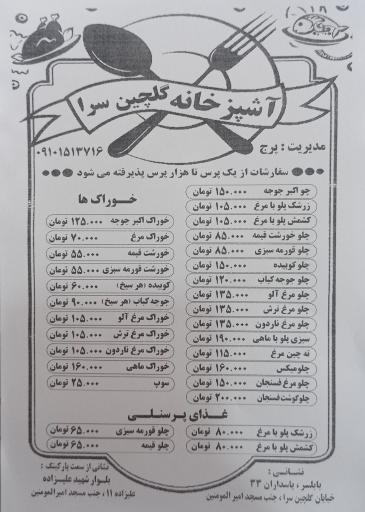 آشپزخانه گلچین سرا
مدیریت : ایرج
۰۹۱۰۱۵۱۳۷۱۶
سفارشات از یک پرس تا هزار پرس پذیرفته می شود
چلو اکبر جوجه ۱۵۰.۰۰۰ تومان
زرشک پلو با مرغ ۱۰۵.۰۰۰ تومان
کشمش پلو با مرغ ۱۰۵.۰۰۰ تومان
چلو خورشت قیمه ۸۵.۰۰۰ تومان
چلو قورمه سبزی ۸۵.۰۰۰ تومان
چلو کوبیده ۱۵۰.۰۰۰ تومان
چلو جوجه کباب ۱۲۰.۰۰۰ تومان
چلو مرغ آلو ۱۳۵.۰۰۰ تومان
چلو مرغ ترش ۱۳۵.۰۰۰ تومان
چلو مرغ ناردون ۱۳۵.۰۰۰ تومان
سبزی پلو با ماهی ۱۹۰.۰۰۰ تومان
ته چین مرغ ۱۱۵.۰۰۰ تومان
چلو میکس ۱۶۰.۰۰۰ تومان
چلو مرغ فسنجان ۱۵۰.۰۰۰ تومان
چلو گوشت فسنجان ۲۰۰.۰۰۰ تومان
خوراک ها
خوراک اکبر جوجه ۱۲۵.۰۰۰ تومان
خوراک مرغ ۷۰.۰۰۰ تومان
خورشت قیمه ۵۵.۰۰۰ تومان
خورشت قورمه سبزی ۵۵.۰۰۰ تومان
کوبیده (هر سیخ) ۶۰.۰۰۰ تومان
جوجه کباب (هر سیخ) ۹۰.۰۰۰ تومان
خوراک مرغ آلو ۱۰۵.۰۰۰ تومان
خوراک مرغ ترش ۱۰۵.۰۰۰ تومان
خوراک مرغ ناردون ۱۰۵.۰۰۰ تومان
خوراک ماهی ۱۶۰.۰۰۰ تومان
سوپ ۲۵.۰۰۰ تومان
غذای پرسنلی
زرشک پلو با مرغ ۸۰.۰۰۰ تومان
کشمش پلو با مرغ ۸۰.۰۰۰ تومان
چلو قورمه سبزی ۶۵.۰۰۰ تومان
چلو قیمه ۶۵.۰۰۰ تومان
نشانی :
بابلسر ، پاسداران ۳۳
خیابان گلچین سرا ، جنب مسجد امیرالمومنین
نشانی از سمت پارکینگ :
بلوار شهید علیزاده
علیزاده ۱۱ ، جنب مسجد امیرالمومنین